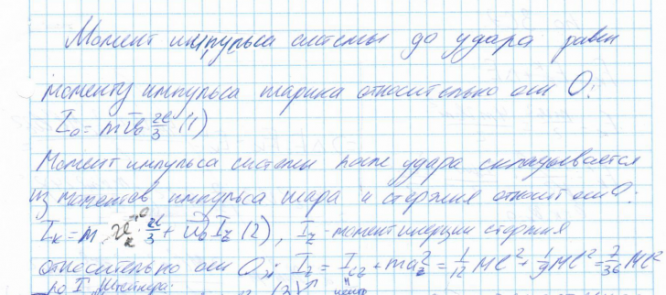 Момент импульса системы до удара равен
моменту импульса шарика относительно оси O:
I₀ = mv̄₀ 2l/3 (1)
Момент импульса системы после удара складывается
из моментов импульса шара и стержня относит оси O:
Iₖ = m · 2l/3 + I_z (2), I_z - момент инерции стержня
относительно оси O, I_z = I_cz + ma_z² = 1/12 Ml² + 1/9 Ml² = 7/36 Ml²
по Т. Штейнера: